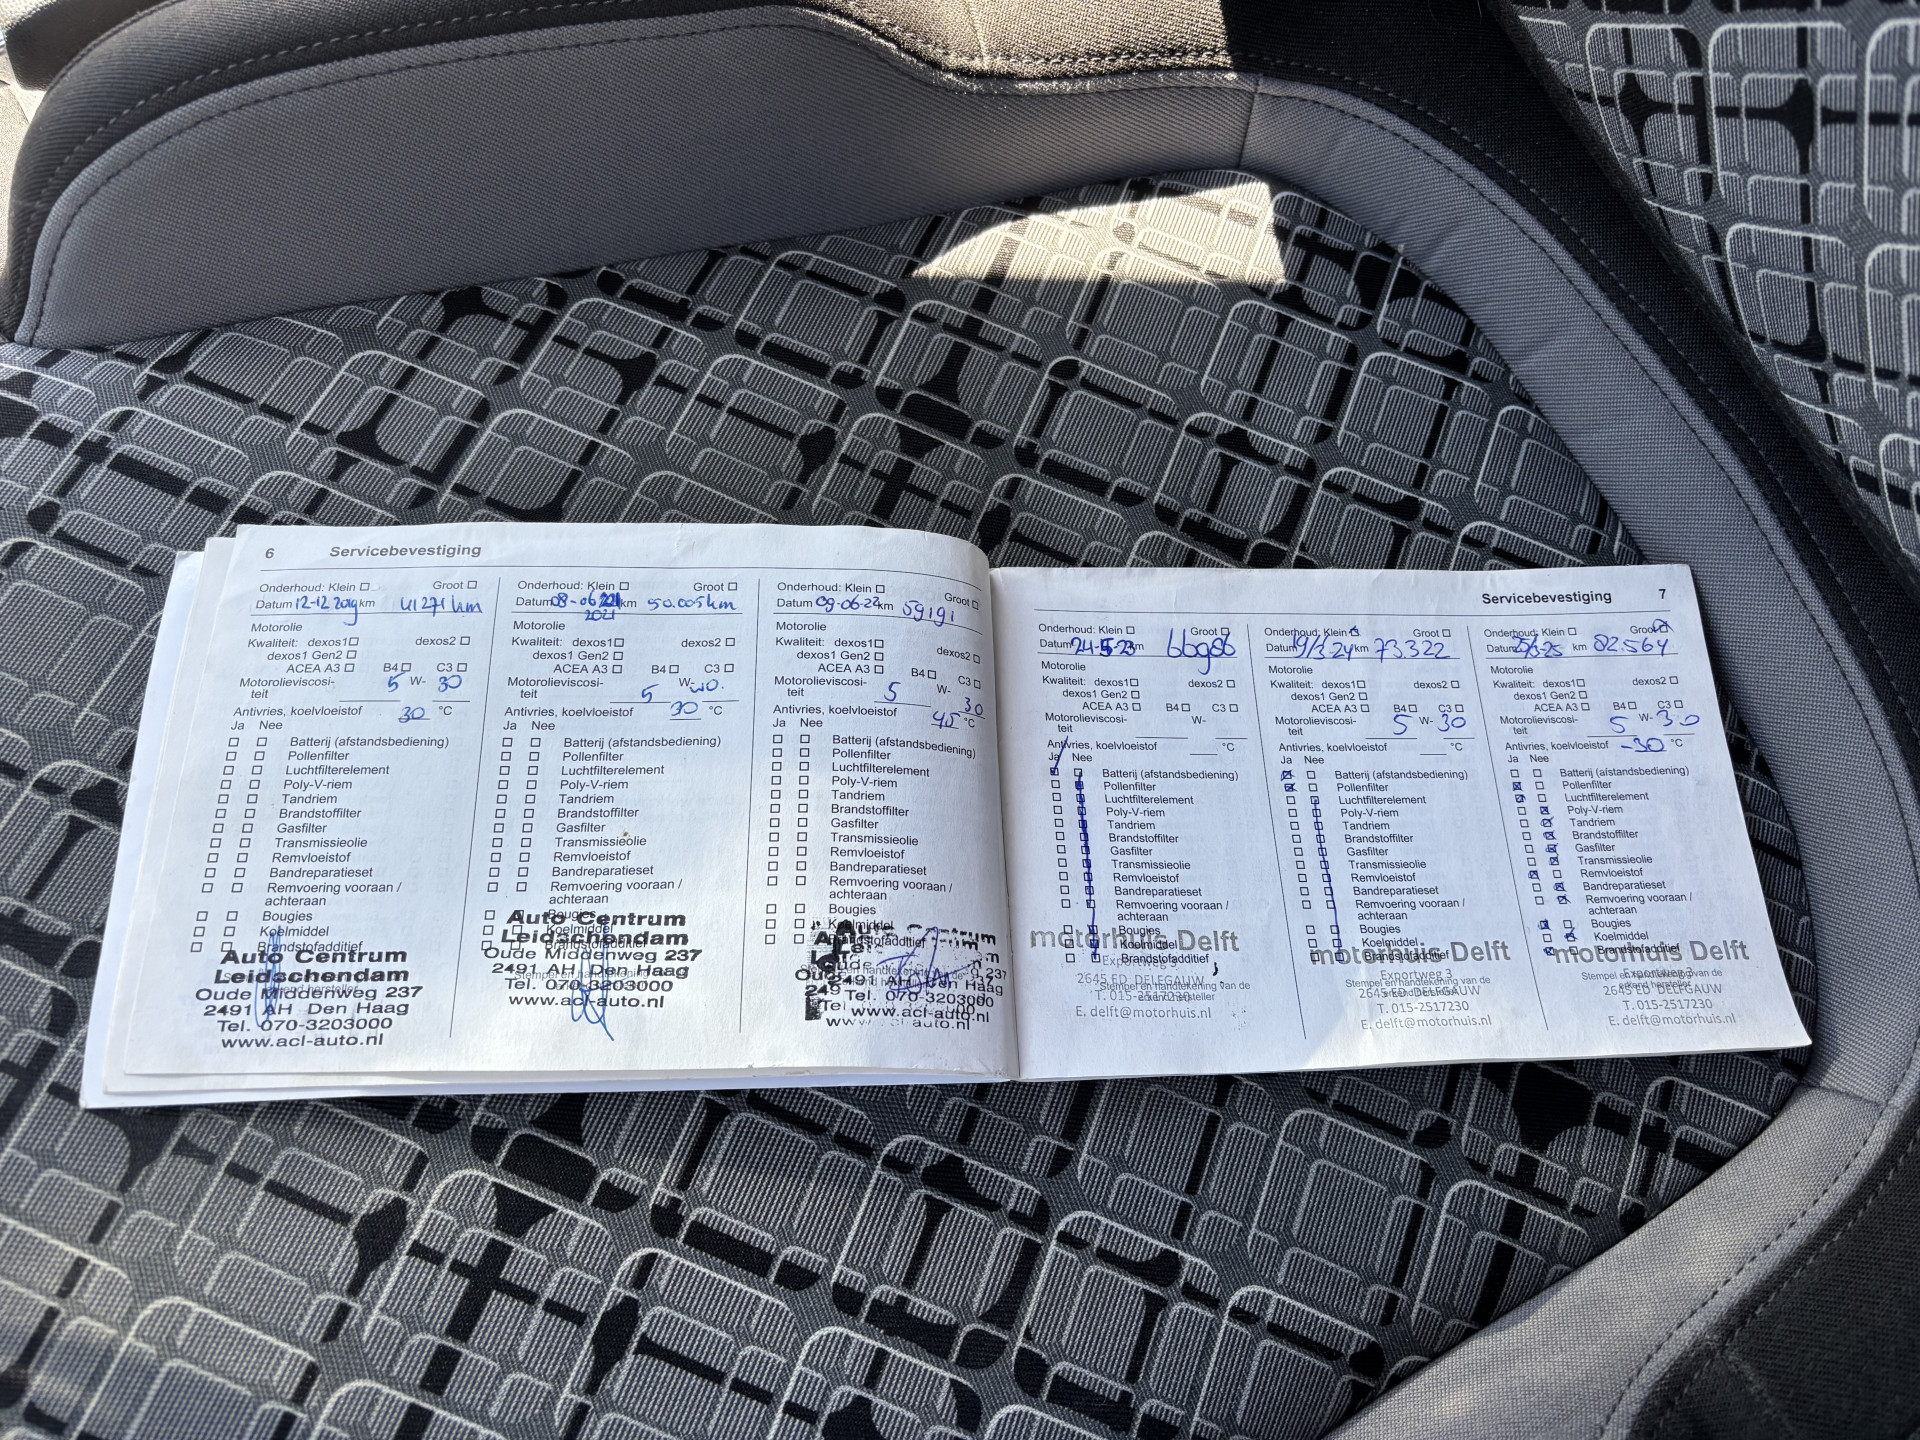 6 Servicebevestiging
Onderhoud: Klein Groot
Datum 12-12 2019 km 41271 km
Motorolie
Kwaliteit: dexos1 dexos2
dexos1 Gen2
ACEA A3 B4 C3
Motorolieviscosi- 5 W- 30
teit
Antivries, koelvloeistof 30 °C
Ja Nee
Batterij (afstandsbediening)
Pollenfilter
Luchtfilterelement
Poly-V-riem
Tandriem
Brandstoffilter
Gasfilter
Transmissieolie
Remvloeistof
Bandreparatieset
Remvoering vooraan /
achteraan
Bougies
Koelmiddel
Brandstofadditief
Auto Centrum
Leidschendam
Oude Middenweg 237
2491 AH Den Haag
Tel. 070-3203000
www.acl-auto.nl
Onderhoud: Klein Groot
Datum 08-06 2021 km 50.005 km
Motorolie
Kwaliteit: dexos1 dexos2
dexos1 Gen2
ACEA A3 B4 C3
Motorolieviscosi- 5 W-
teit
Antivries, koelvloeistof 30 °C
Ja Nee
Batterij (afstandsbediening)
Pollenfilter
Luchtfilterelement
Poly-V-riem
Tandriem
Brandstoffilter
Gasfilter
Transmissieolie
Remvloeistof
Bandreparatieset
Remvoering vooraan /
achteraan
Bougies
Koelmiddel
Brandstofadditief
Auto Centrum
Leidschendam
Oude Middenweg 237
2491 AH Den Haag
Tel. 070-3203000
www.acl-auto.nl
Onderhoud: Klein Groot
Datum 09-06-22 km 59191
Motorolie
Kwaliteit: dexos1 dexos2
dexos1 Gen2
ACEA A3 B4 C3
Motorolieviscosi- 5 W- 30
teit
Antivries, koelvloeistof 45 °C
Ja Nee
Batterij (afstandsbediening)
Pollenfilter
Luchtfilterelement
Poly-V-riem
Tandriem
Brandstoffilter
Gasfilter
Transmissieolie
Remvloeistof
Bandreparatieset
Remvoering vooraan /
achteraan
Bougies
Koelmiddel
Brandstofadditief
Tel. 070-3203000
www.acl-auto.nl
Servicebevestiging 7
Onderhoud: Klein Groot
Datum 24-5-23 km 66986
Motorolie
Kwaliteit: dexos1 dexos2
dexos1 Gen2
ACEA A3 B4 C3
Motorolieviscosi- W-
teit
Antivries, koelvloeistof °C
Ja Nee
Batterij (afstandsbediening)
Pollenfilter
Luchtfilterelement
Poly-V-riem
Tandriem
Brandstoffilter
Gasfilter
Transmissieolie
Remvloeistof
Bandreparatieset
Remvoering vooraan /
achteraan
Bougies
Koelmiddel
Brandstofadditief
motorhuis Delft
Exportweg 3
2645 ED DELFGAUW
Stempel en handtekening van de
T. 015-2517230
E. delft@motorhuis.nl
Onderhoud: Klein Groot
Datum 19/3-24 km 73.322
Motorolie
Kwaliteit: dexos1 dexos2
dexos1 Gen2
ACEA A3 B4 C3
Motorolieviscosi- 5 W- 30
teit
Antivries, koelvloeistof °C
Ja Nee
Batterij (afstandsbediening)
Pollenfilter
Luchtfilterelement
Poly-V-riem
Tandriem
Brandstoffilter
Gasfilter
Transmissieolie
Remvloeistof
Bandreparatieset
Remvoering vooraan /
achteraan
Bougies
Koelmiddel
Brandstofadditief
motorhuis Delft
Exportweg 3
Stempel en handtekening van de
2645 ED DELFGAUW
T. 015-2517230
E. delft@motorhuis.nl
Onderhoud: Klein Groot
Datum km 82.564
Motorolie
Kwaliteit: dexos1 dexos2
dexos1 Gen2
ACEA A3 B4 C3
Motorolieviscosi- 5 W- 30
teit
Antivries, koelvloeistof -30 °C
Ja Nee
Batterij (afstandsbediening)
Pollenfilter
Luchtfilterelement
Poly-V-riem
Tandriem
Brandstoffilter
Gasfilter
Transmissieolie
Remvloeistof
Bandreparatieset
Remvoering vooraan /
achteraan
Bougies
Koelmiddel
Brandstofadditief
motorhuis Delft
Exportweg 3
Stempel en handtekening van de
2645 ED DELFGAUW
T. 015-2517230
E. delft@motorhuis.nl